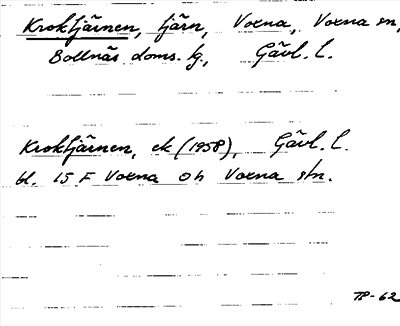 Kroktjärnen, tjärn, Voxna, Voxna sn,
Bollnäs doms. lg., Gävl. l.
Kroktjärnen, ek (1958), Gävl. l.
bl. 15 F Voxna Oh Voxna sn.
TP-62